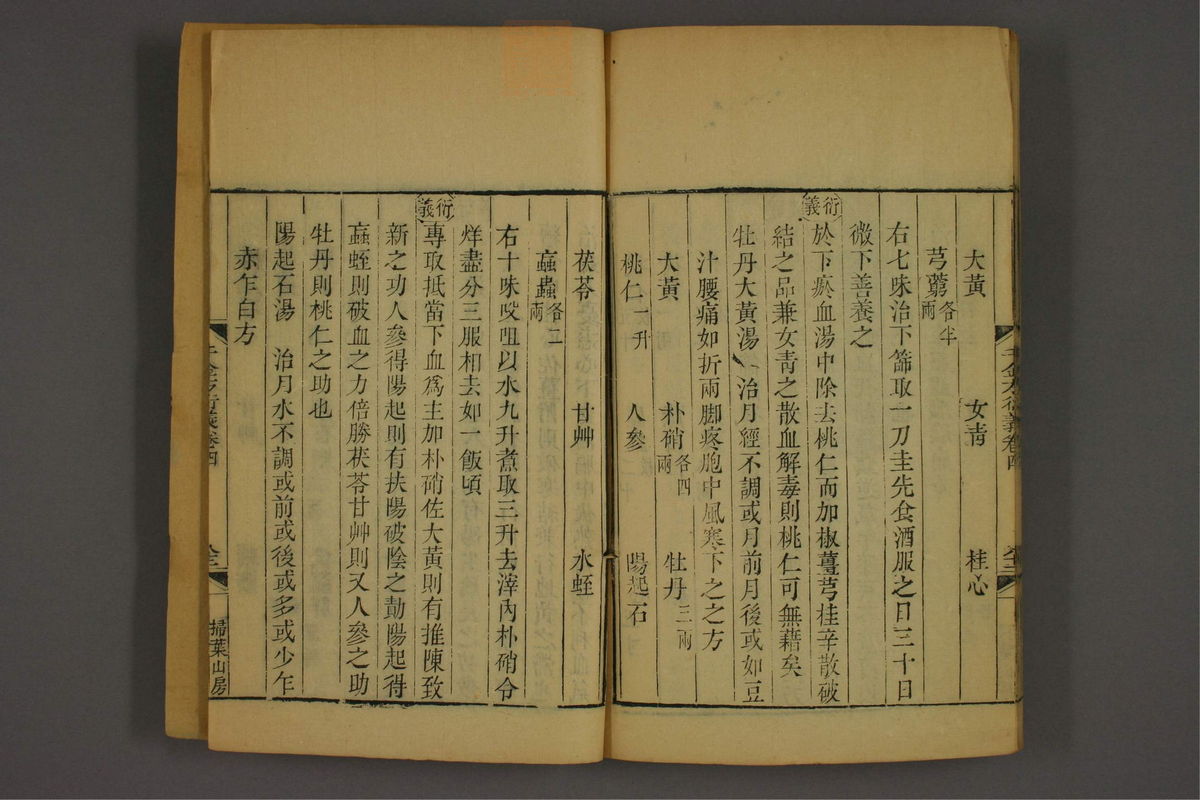 大黃 女靑 桂心
芎藭各半兩
右七味治下篩取一刀圭先食酒服之日三十日
微下善養之
衍義 於下瘀血湯中除去桃仁而加椒薑芎桂辛散破
結之品兼女青之散血解毒則桃仁可無藉矣
牡丹大黃湯 治月經不調或月前月後或如豆
汁腰痛如折兩脚疼胞中風寒下之之方
大黃 朴硝各四兩 牡丹三兩
桃仁一升 人參 陽起石
茯苓 甘艸 水蛭
䗪蟲各二兩
右十味㕮咀以水九升煮取三升去滓內朴硝令
烊盡分三服相去如一飯頃
衍義 專取抵當下血爲主加朴硝佐大黃則有推陳致
新之功人參得陽起則有扶陽破陰之勣陽起得
䗪蛭則破血之力倍勝茯苓甘艸則又人參之助
牡丹則桃仁之助也
陽起石湯 治月水不調或前或後或多或少乍
赤乍白方
千金方衍義卷四
掃葉山房